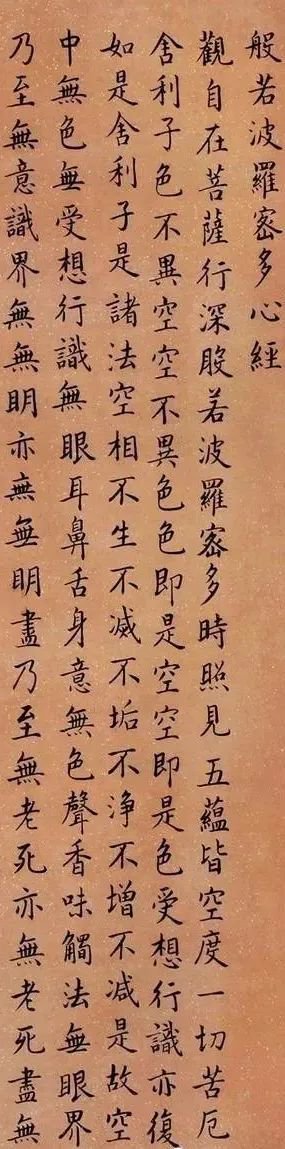 般若波羅蜜多心經
觀自在菩薩行深般若波羅蜜多時照見五蘊皆空度一切苦厄
舍利子色不異空空不異色色即是空空即是色受想行識亦復
如是舍利子是諸法空相不生不滅不垢不淨不增不減是故空
中無色無受想行識無眼耳鼻舌身意無色聲香味觸法無眼界
乃至無意識界無無明亦無無明盡乃至無老死亦無老死盡無